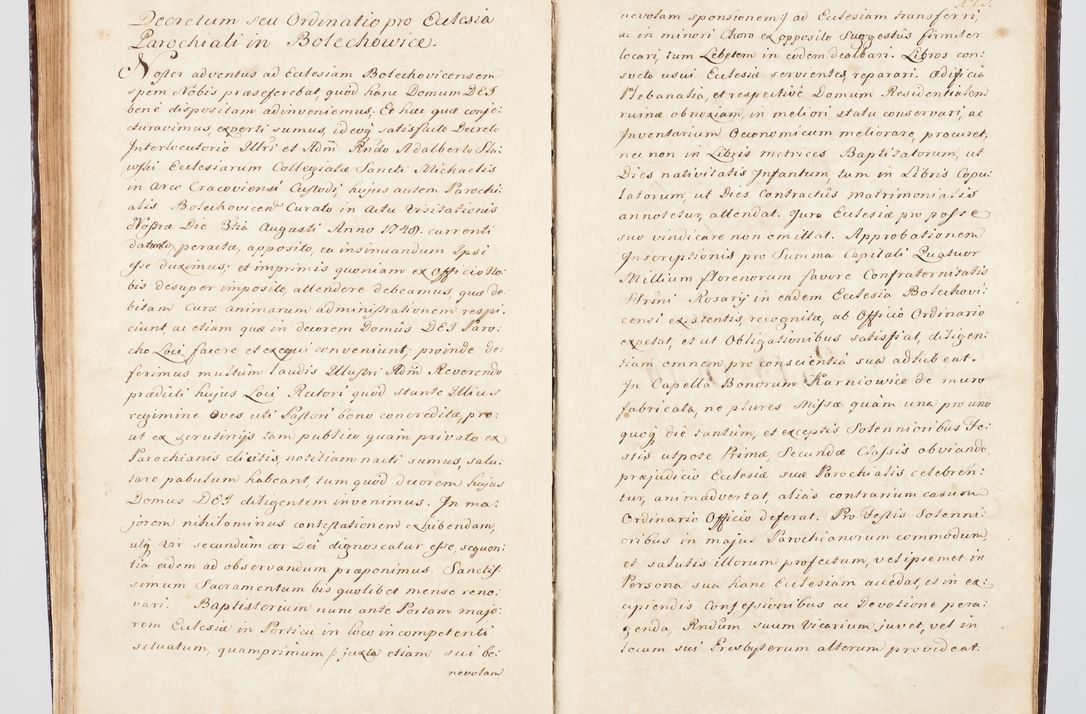 Decretum seu Ordinatio pro Eclesia
Parochiali in Bolechowice.
Noster adventus ad Eclesiam Bolechoviensem
spem Nobis præseferebat, quod hanc Domum DEI
benè dispositam adinveniemus; Et hæc quæ conje:
cturavimus, experti sumus, ideoq satisfacto Decreto
Interlocutorio Illri et Adm Rndo Adalberto
Eclesiarum Collegiatæ Sancti Michaelis
in Arce Cracoviensi Custodi, hujus autem Parochi:
alis Bolechovicen Curato in actu Visitationis
Nostræ Die 3tia Augusti Anno 1748. currenti
peracta, apposito, ea insinuandum Ipsi
esse duximus; et imprimis quoniam ex Officio No:
bis desuper imposito, attendere debeamus, quæ de:
bitam curæ animarum administrationem respi:
ciunt, ac etiam quæ in decorem Domûs DEI Paro:
cho Loci facere et exequi conveniunt; proinde de:
ferimus multum laudis Illustri Adm Reverendo
prædicti hujus Loci Rectori, quod stante Illius
regimine Oves uti Pastori bono concreditæ, pro:
ut ex scrutinijs tam publico quam privato ex
Parochianis elicitis, notitiam nacti sumus, salu:
tare pabulum habeant, tum quod decorem hujus
Domus DEI diligentem invenimus. In ma:
jorem nihilominus contestationem exhibendam,
utq Vir secundùm cor Dei dignoscatur esse, sequen:
tia eidem ad observandum præponimus. Sanctis:
simum Sacramentum bis quolibet mense reno:
vari. Baptisterium nunc ante Portam majo:
rem Eclesiæ in Porticu in loco incompetenti
situatum, quamprimum /: juxta etiam sui be:
nevolam
nevolam sponsionem:/ ad Eclesiam transferri,
ac in minori Choro ex opposito Suggestûs firmiter
locari, tum Lebetem in eodem dealbari. Libros con:
sueto usui Eclesiæ servientes, reparari. Ædificia
Plebanalia, et respectivè Domum Residentialem
ruinæ obnoxiam, in meliori statu conservari, ac
Inventarium Oeconomicum meliorare, procuret,
nec non in Libris metrices Baptizatorum, ut
Dies nativitatis Infantum, tum in Libris Copu:
latorum, ut Dies Contractûs matrimonialis
annotetur, attendat. Jura Eclesiæ pro posse
suo vindicare non omittat. Approbationem
Inscriptionis pro Summa Capitali Quatuor
Millium florenorum favore Confraternitatis
Sstrini Rosarij in eadem Eclesia Bolechovi:
censi existentis, recognitæ, ab Officio Ordinario
expetat, et ut Obligationibus satisfiat, diligen:
tiam omnem pro conscientia sua adhibeat.
In Capella Bonorum Karniowice de muro
fabricata, ne plures Missæ quàm una pro uno
quoq die tantùm, et exceptis Solennioribus Fe:
stis utpote Primæ, Secundæ Classis obviando
præjudicio Eclesiæ suæ Parochialis celebren:
tur, animadvertat, aliàs contrarium casum
Ordinario Officio deferat. Pro Festis Solenni:
oribus in majus Parochianorum commodum,
et salutis illorum profectum, vel ipsemet in
Persona sua hanc Eclesiam accedat, et in ex:
cipiendis Confessionibus ac Devotione pera:
genda, Rndum suum Vicarium juvet, vel in
locum sui Presbyterum alterum provideat.